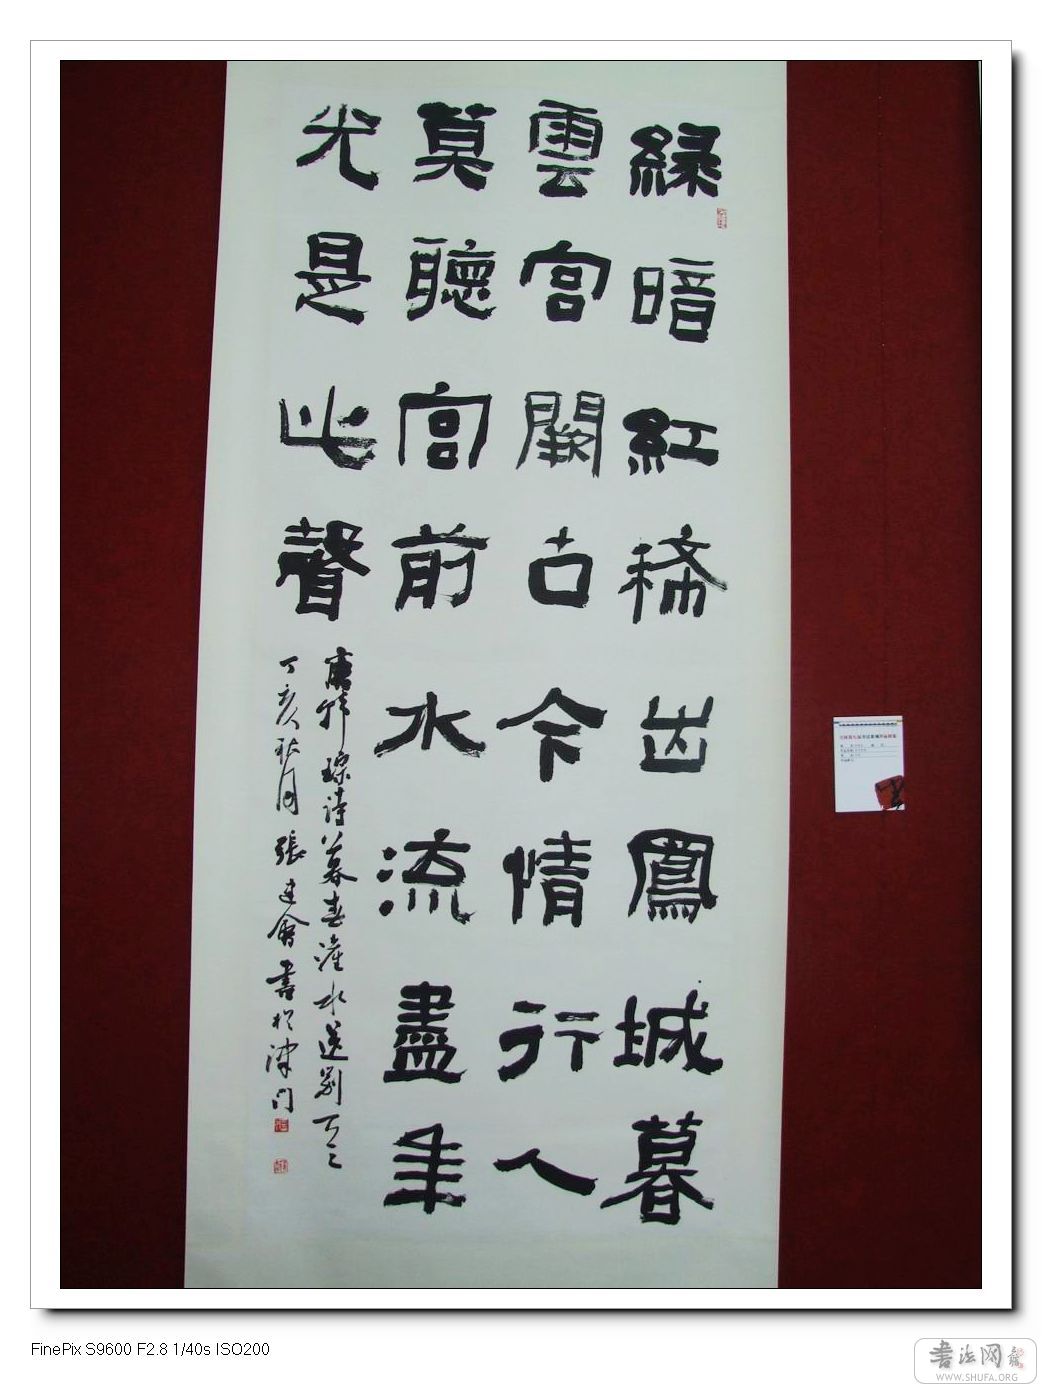 綠暗紅稀出鳳城暮
雲宮闕古今情行人
莫聽宮前水流盡年
光是此聲
唐韓琮詩暮春滻水送別
丁亥秋月張建會書於津門
FinePix S9600 F2.8 1/40s ISO200
書法网
WWW.SHUFA.ORG